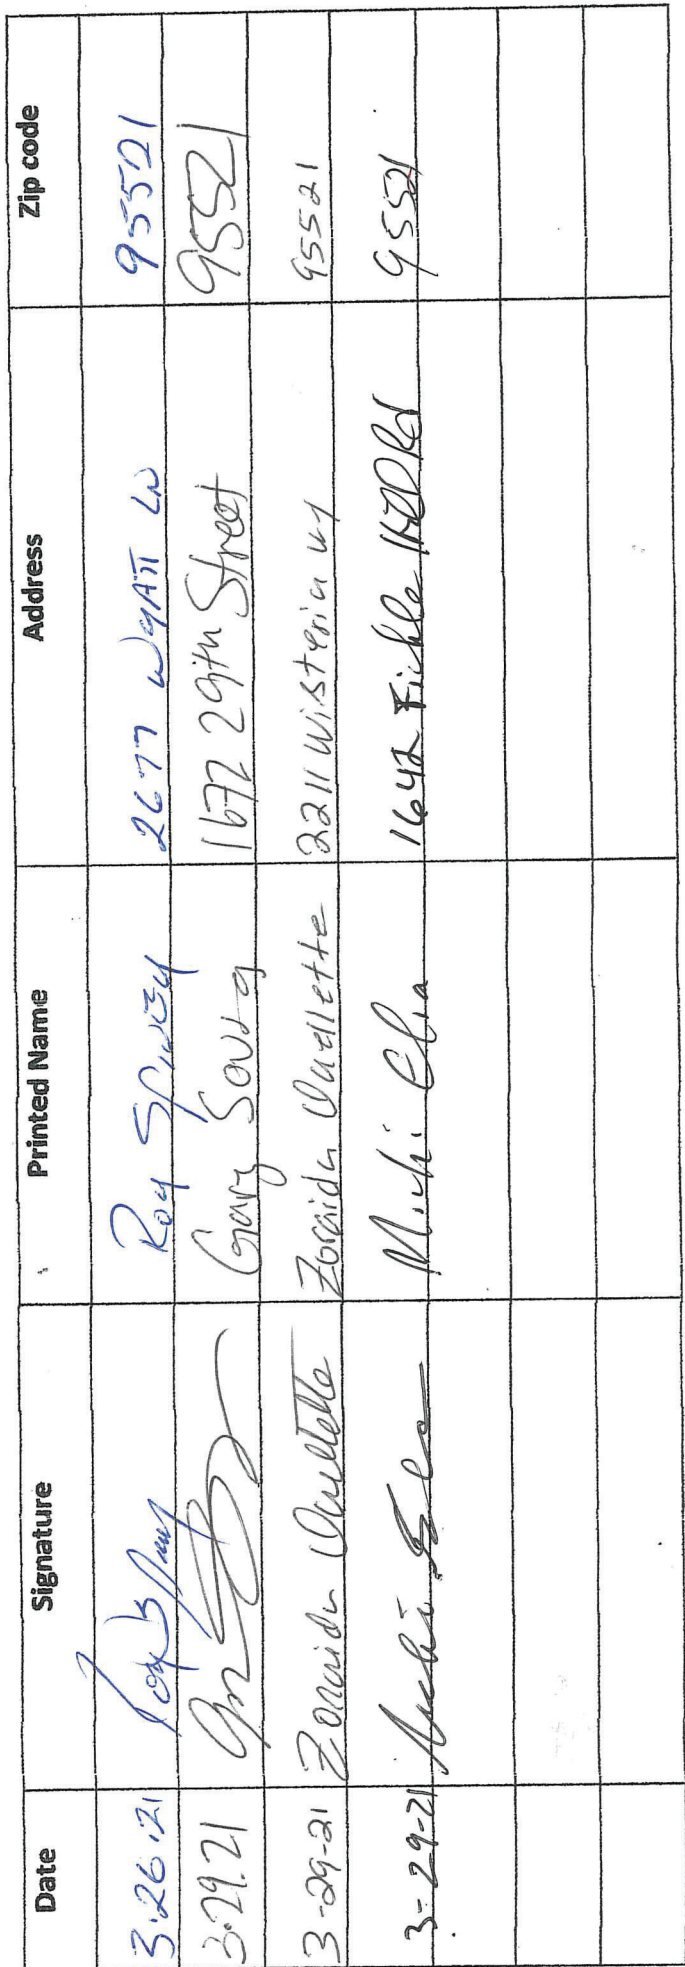 Date Signature Printed Name Address Zip code
3.26.21 Roy Spivey 2677 Wyatt Ln 95521
3.29.21 Gary 1672 29th Street 95521
3-29-21 Zoraida Ouellette Zoraida Ouellette 2211 Wisteria wy 95521
3-29-21 Michi 1642 Fickle Hill Rd 95521